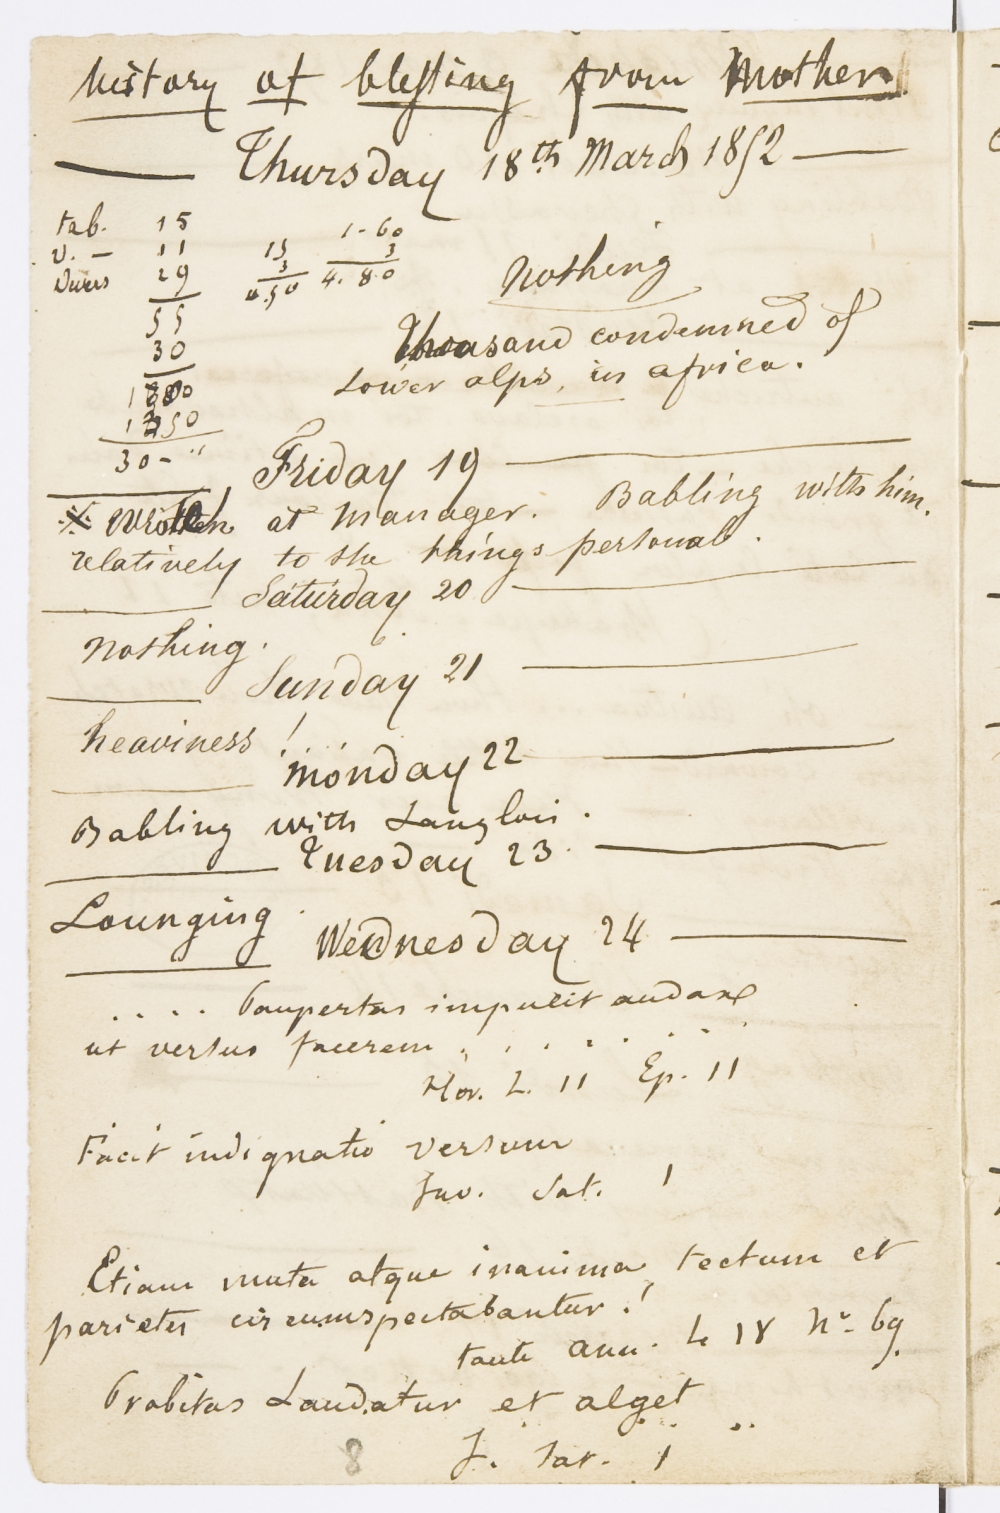 history of blessing from Mother
Thursday 18th March 1852
tab. 15
v. – 11
Divers 29
55
30
1
1 50
30 – "
15
3
4.50
1-60
3
4.80
Nothing
Thousand condemned of
Lower alps, in africa.
Friday 19
at Manager. Babling with him.
relatively to the things personal.
Saturday 20
Nothing.
Sunday 21
heaviness !
Monday 22
Babling with Langlois.
Tuesday 23.
Lounging.
Wednesday 24
.... Paupertas impulit audax
ut versus facerem . . . . . . . .
Hor. L. 11 Ep. 11
Facit indignatio versum
Juv. Sat. 1
Etiam muta atque inanima, tectum et
parietes circumspectabantur !
ann. L 18 N° 69.
Probitas Laudatur et alget
J. Sat. 1
8